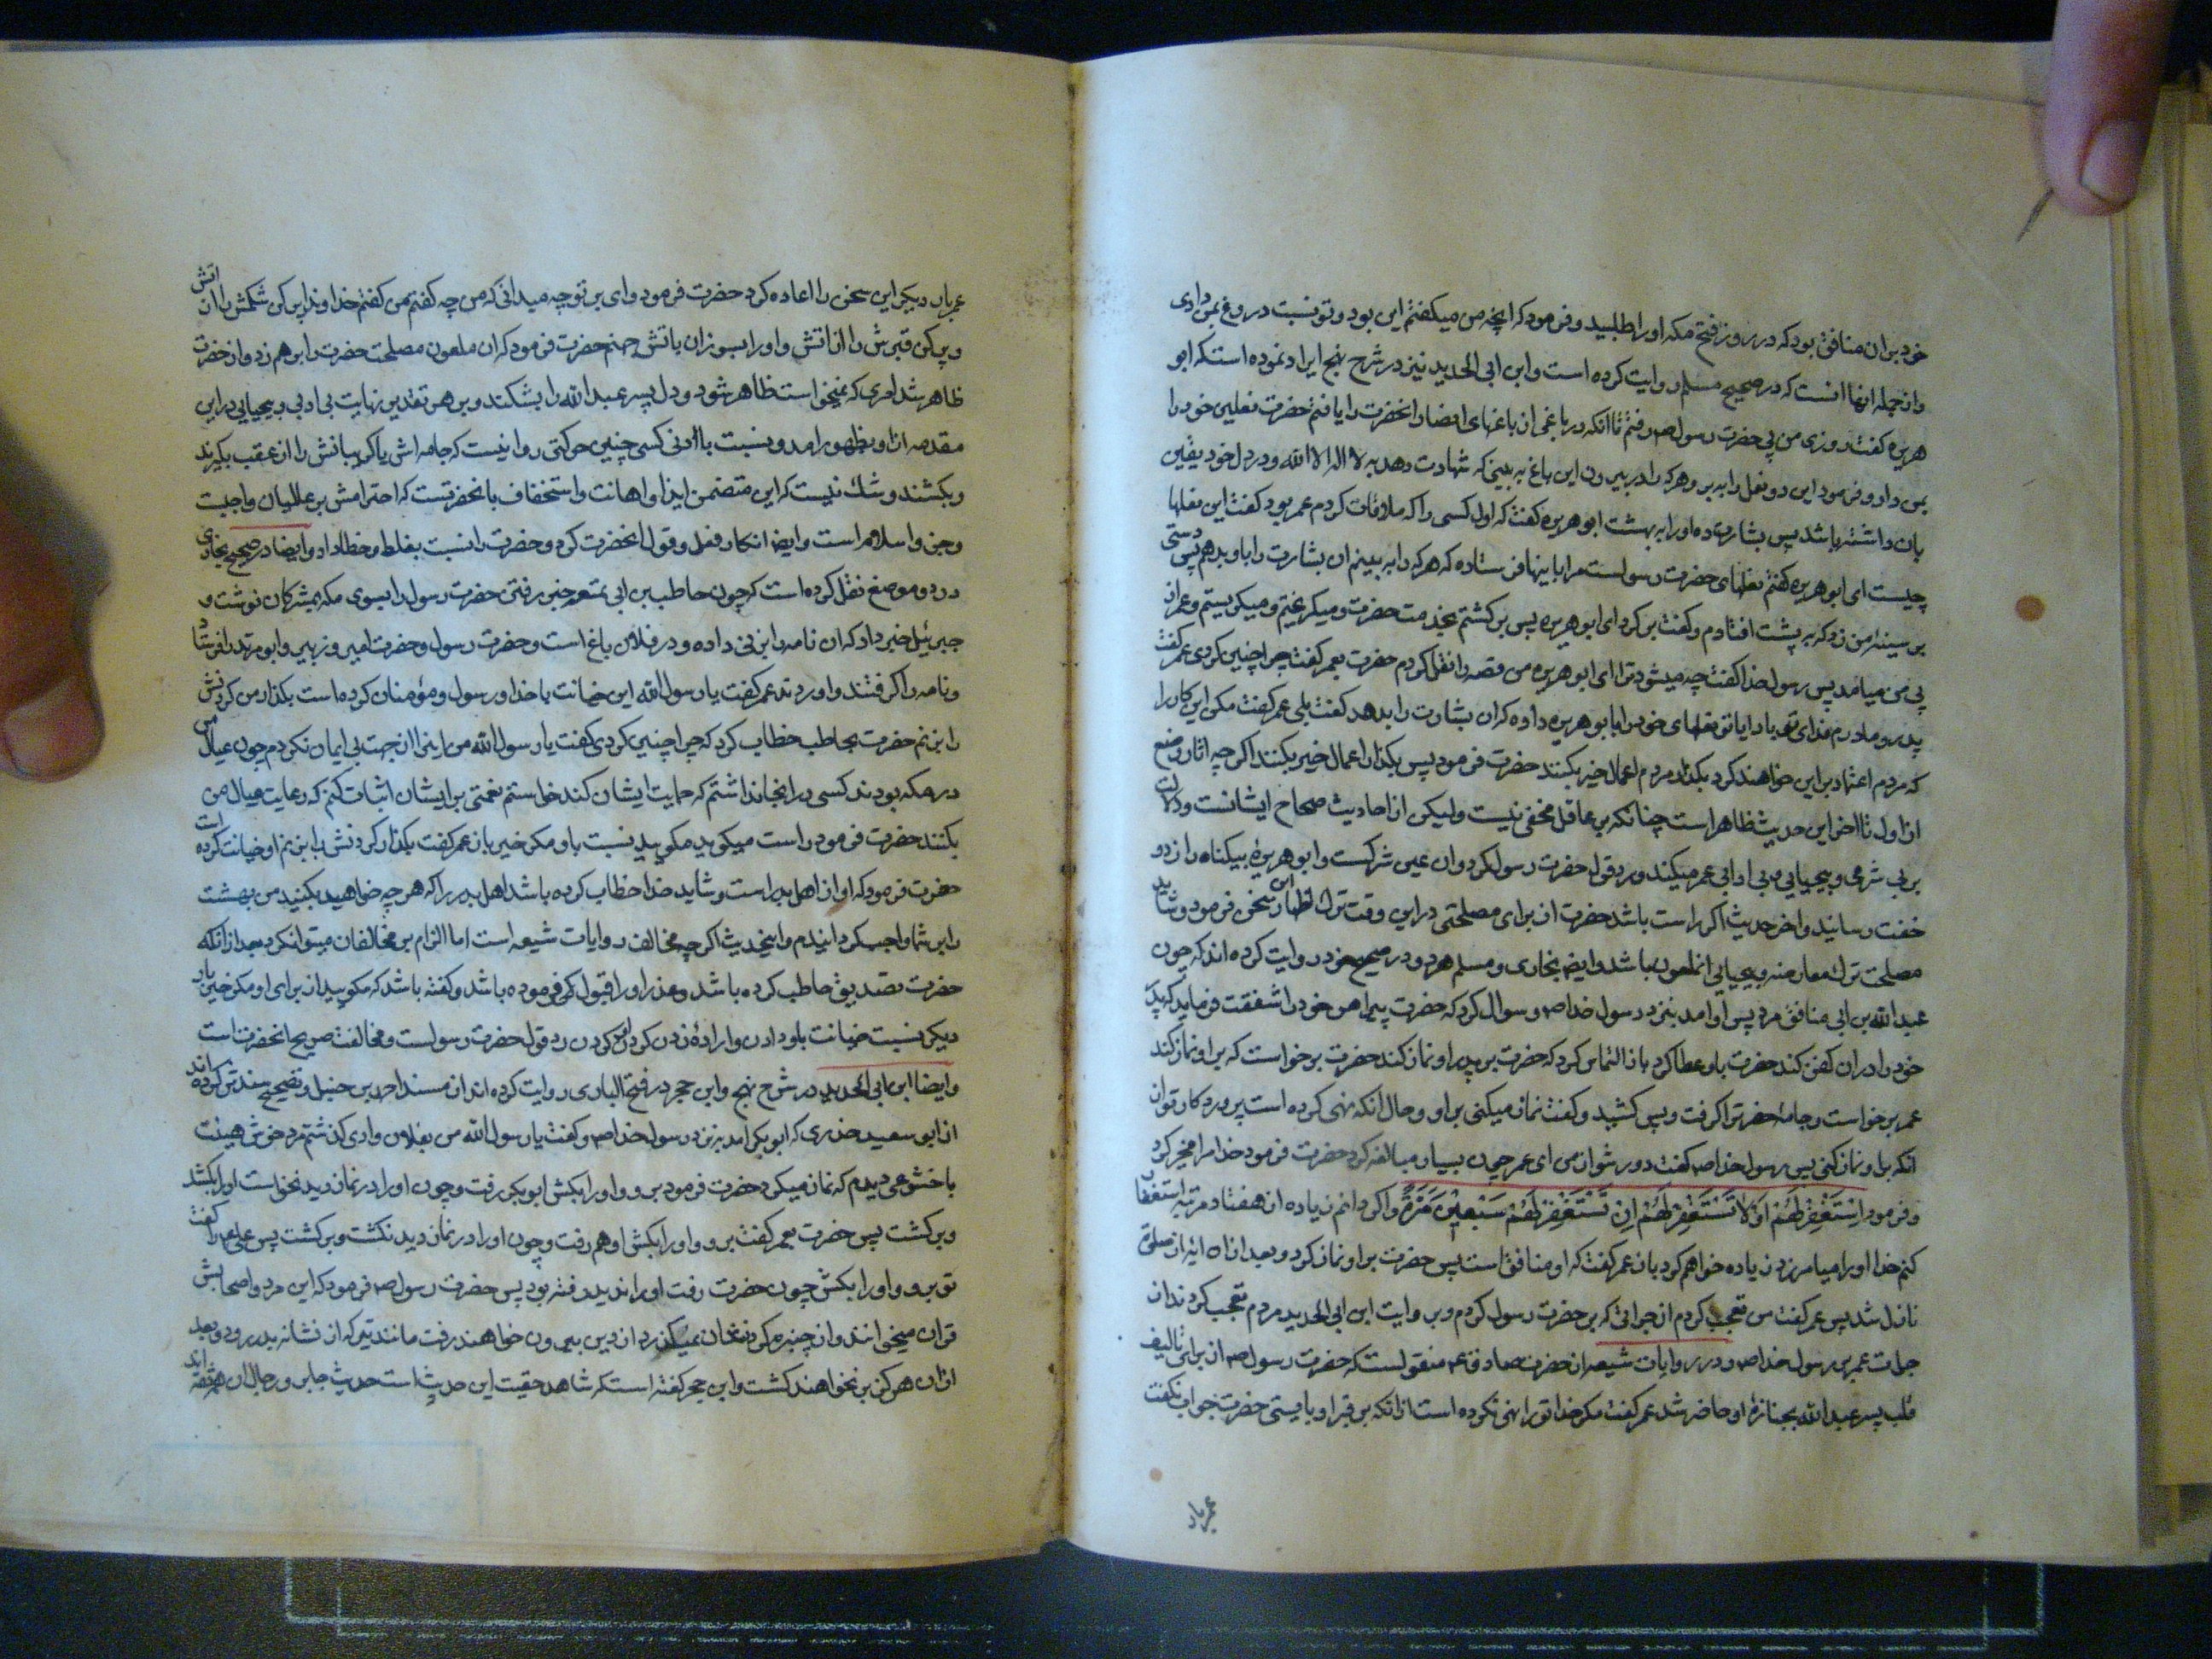 خود بران منافق بود که در روز فتح مکه او را طلبید و فرمود که اینچه من میکفتم این بود و تو نسبت دروغ بمن دادی
واز جمله انها انست که در صحیح مسلم روایت کرده است وابن ابی الحدید نیز در شرح نهج ایراد نموده است که ابو
هریره کفت روزی من پی حضرت رسول ص رفتم تا انکه در باغی از باغهای انصار انحضرت را یافتم حضرت نعلین خود را
بمن داد و فرمود این دو نعل را ببر و هرکه را در بیرون این باغ به بینی که شهادت دهد به لا اله الا الله و در دل خود یقین
بان داشته باشد پس بشارت ده او را به بهشت ابو هریره کفت که اول کسی را که ملاقات کردم عمر بود کفت این نعلها
چیست ای ابو هریره کفتم نعلهای حضرت رسولست مرا با اینها فرستاده که هرکه را به بینم ان بشارت را باو بدهم پس دستی
بر سینه من زد که به پشت افتادم و کفت برکرد ای ابو هریره پس برکشتم بخدمت حضرت و میکریختم و میکریستم و عمر از
پی من میامد پس رسول خدا کفت چه میشود ترا ای ابو هریره من قصه را نقل کردم حضرت بعمر کفت چرا چنین کردی عمر کفت
پدر و مادرم فدای تو باد ایا تو نعلهای خود را بابو هریره داده که ان بشارت را بدهد کفت بلی عمر کفت مکن این کار را
که مردم اعتماد براین خواهند کرد بکذار مردم اعمال خیر بکنند حضرت فرمود پس بکذار اعمال خیر بکنند اکرچه اثار وضع
از اول تا اخر این حدیث ظاهر است چنانکه بر عاقل مخفی نیست ولیکن از احادیث صحاح ایشانست و دلالت
بر بی شرمی و بیحیایی و بی ادابی عمر میکند و رد قول حضرت رسول کرد وان عین شرکست وابو هریره بیکناه را زد و
خفت رسانید و اخر حدیث اکر راست باشد حضرت از برای مصلحتی در این وقت ترک اظهار این سخن فرمود و شاید
مصلحت ترک معارضه و بیحیایی انملعون باشد وایضا بخاری و مسلم هر دو در صحیح خود روایت کرده اند که چون
عبد الله بن ابی منافق مرد پسر او امد بنزد رسول خدا ص و سوال کرد که حضرت پیراهن خود را شفقت فرماید که پدر
خود را در ان کفن کند حضرت باو عطا کرد باز التماس کرد که حضرت بر پدر او نماز کند حضرت برخواست که بر او نماز کند
عمر برخواست و جامه حضرت را کرفت و پس کشید و کفت نماز میکنی بر او و حال انکه نهی کرده است پروردکار تو از
انکه بر او نماز کنی پس رسول خدا ص کفت دور شو از من ای عمر چون بسیار مبالغه کرد حضرت فرمود خدا مرا مخیر کرد
و فرمود اِسْتَغْفِرْ لَهُمْ اَوْ لَا تَسْتَغْفِرْ لَهُمْ اِنْ تَسْتَغْفِرْ لَهُمْ سَبْعِیْنَ مَرَّةً و اکر دانم زیاده از هفتاد مرتبه استغفار
کنم خدا او را میامرزد زیاده خواهم کرد باز عمر کفت که او منافق است پس حضرت بر او نماز کرد و بعد از ان ایه
نازل شد پس عمر کفت من تعجب کردم از جراتی که بر حضرت رسول کردم و بروایت ابن ابی الحدید مردم تعجب کردند از
جرات عمر بر رسول خدا ص و در روایات شیعه از حضرت صادق ع منقولست که حضرت رسول ص از برای تالیف
قلب پسر عبد الله بجنازه او حاضر شد عمر کفت مکر خدا تو را نهی نکرده است از انکه بر قبر او بایستی حضرت جواب نکفت
عمر باز
عمر باز دیکر این سخن را اعاده کرد حضرت فرمود وای بر تو چه میدانی که من چه کفتم من کفتم خداوندا پر کن شکمش را از اتش
و پر کن قبرش را از اتش و او را بسوزان باتش جهنم حضرت فرمود که ان ملعون مصلحت حضرت را برهم زد و از حضرت
ظاهر شد امری که نمیخواست ظاهر شود و دل پسر عبد الله را بشکند و بر هر تقدیر نهایت بی ادبی و بیحیایی در این
مقدمه از او بظهور امد و نسبت باادنی کسی چنین حرکتی روا نیست که جامه اش یا کریبانش را از عقب بکیرند
و بکشند و شک نیست که این متضمن ایذا و اهانت و استخفاف بانحضرتست که احترامش بر عالمیان واجبست
و جزو اسلام است وایضا انکار فعل و قول انحضرت کرد و حضرت را نسبت بغلط و خطا داد وایضا در صحیح بخاری
در دو موضع نقل کرده است که چون حاطب بن ابی بلتعه خبر رفتن حضرت رسول را بسوی مکه بمشرکان نوشت و
جبرئیل خبر داد که ان نامه را بزنی داده و در فلان باغ است و حضرت رسول و حضرت امیر و زبیر وابو مرثد را فرستاد
و نامه را کرفتند و اوردند عمر کفت یا رسول الله این خیانت با خدا و رسول و مؤمنان کرده است بکذار من کردنش
را بزنم حضرت بحاطب خطاب کرد که چرا چنین کردی کفت یا رسول الله من این را از جهت بی ایمان نکردم چون عیال من
در مکه بودند کسی در انجا نداشتم که حمایت ایشان کند خواستم نعمتی بر ایشان اثبات کنم که رعایت عیال من
بکنند حضرت فرمود راست میکوید مکویید نسبت باو مکر خیر باز عمر کفت بکذار کردنش را بزنم او خیانت کرده است
حضرت فرمود که او از اهل بدر است و شاید خدا خطاب کرده باشد اهل بدر را که هرچه خواهید بکنید من بهشت
را بر شما واجب کردانیدم و اینحدیث اکرچه مخالف روایات شیعه است اما الزام بر مخالفان میتوان کرد بعد از انکه
حضرت تصدیق حاطب کرده باشد و عذر او را قبول فرموده باشد و کفته باشد که مکویید از برای او مکر خیر باز
دیکر نسبت خیانت باو دادن و اراده زدن کردن او کردن رد قول حضرت رسولست و مخالفت صریح انحضرت است
وایضا ابن ابی الحدید در شرح نهج وابن حجر در فتح الباری روایت کرده اند از مسند احمد بن حنبل و تصحیح سندش کرده اند
از ابو سعید خدری که ابو بکر امد به نزد رسول خدا ص و کفت یا رسول الله من بفلان وادی کذشتم مرد خوش هیئت
با خشوعی دیدم که نماز میکرد حضرت فرمود برو و او را بکش ابو بکر رفت و چون او را در نماز دید نخواست او را بکشد
و برکشت پس حضرت بعمر کفت برو و او را بکش او هم رفت و چون او را در نماز دید نکشت و برکشت پس علی ع را کفت
تو برو و او را بکش چون حضرت رفت او را ندید رفته بود پس حضرت رسول ص فرمود که این مرد و اصحابش
قران میخوانند و از چنبره کردنشان نمیکذرد از دین بیرون خواهند رفت مانند تیری که از نشانه بدر رود و بعد
از ان هرکز بر نخواهند کشت وابن حجر کفته است که شاهد حقیت این حدیث است حدیث جابر و رجال ان همه ثقه اند